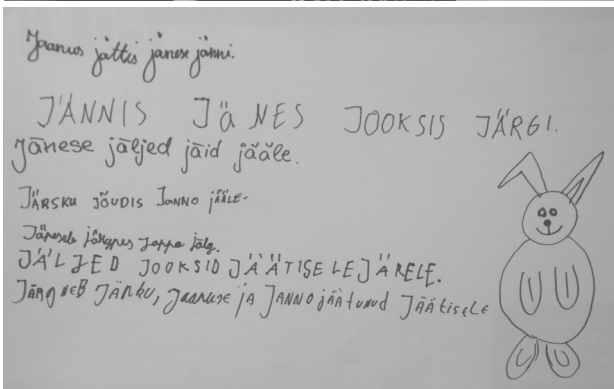 Jaanus jättis jänese jänni.
JÄNNIS JÄNES JOOKSIS JÄRGI.
Jänese jäljed jäid jääle.
JÄRSKU JÕUDIS JANNO jääLE.
Jänesele järgnes Jappo jälg.
JÄLJED JOOKSID JÄÄTISELE JÄRELE.
JÄRGNEB JÄRKU, Jaanuse ja JANNO jäätunud JÄÄtisele